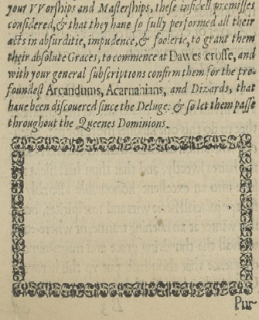 your VVorships and Masterships, these foresaid premisses
considered, & that they haue so fully performed all their
acts in absurditie, impudence, & foolerie, to grant them
their absolute Graces, to commence at Dawes crosse, and
with your generall subscriptions confirm them for the pro-
foundest Arcandums, Acarnanians, and Dizards, that
haue been discouered since the Deluge: & so let them passe
throughout the Queenes Dominions.
Pur-